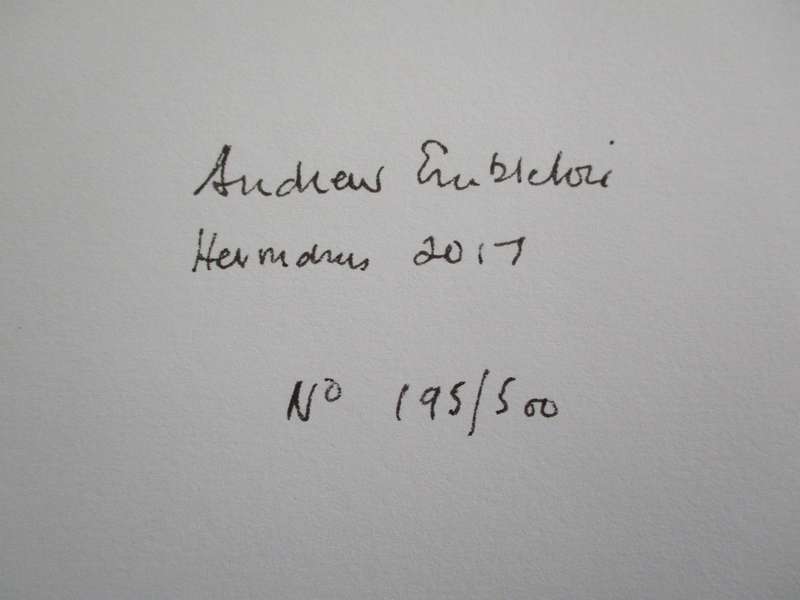 Andrew Embleton
Hermanus 2017
No 195/500